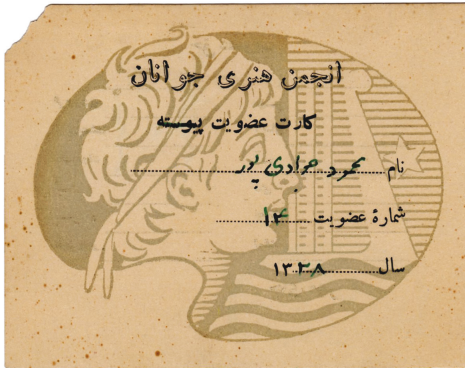 انجمن هنری جوانان
کارت عضویت پیوسته
نام محمود جوادی پور
شمارۀ عضویت ۱۴
سال ۱۳۳۸